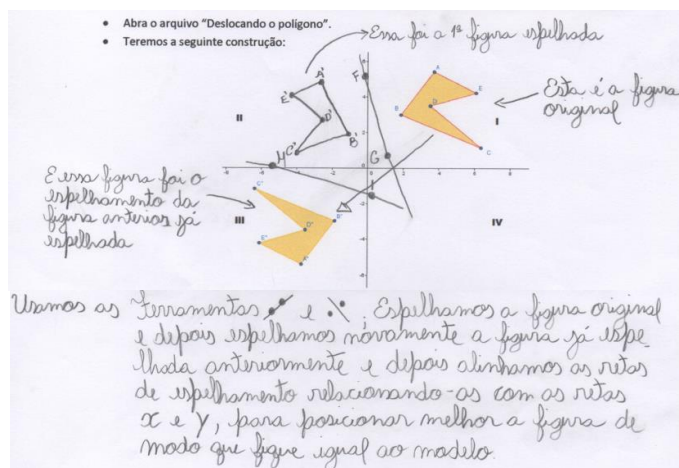 • Abra o arquivo "Deslocando o polígono".
• Teremos a seguinte construção:
Essa foi a 1ª figura espelhada
Esta é a figura
original
E essa figura foi o
espelhamento da
figura anterior já
espelhada
II
I
III
IV
A'
E'
D'
B'
C'
F
G
H
I
A
E
D
B
C
C''
B''
D''
E''
A''
-8
-6
-4
-2
0
2
4
6
8
6
4
2
-2
-4
-6
Usamos as Ferramentas e . Espelhamos a figura original
e depois espelhamos novamente a figura já espe-
lhada anteriormente e depois alinhamos as retas
de espelhamento relacionando-as com as retas
x e y, para posicionar melhor a figura de
modo que fique igual ao modelo.